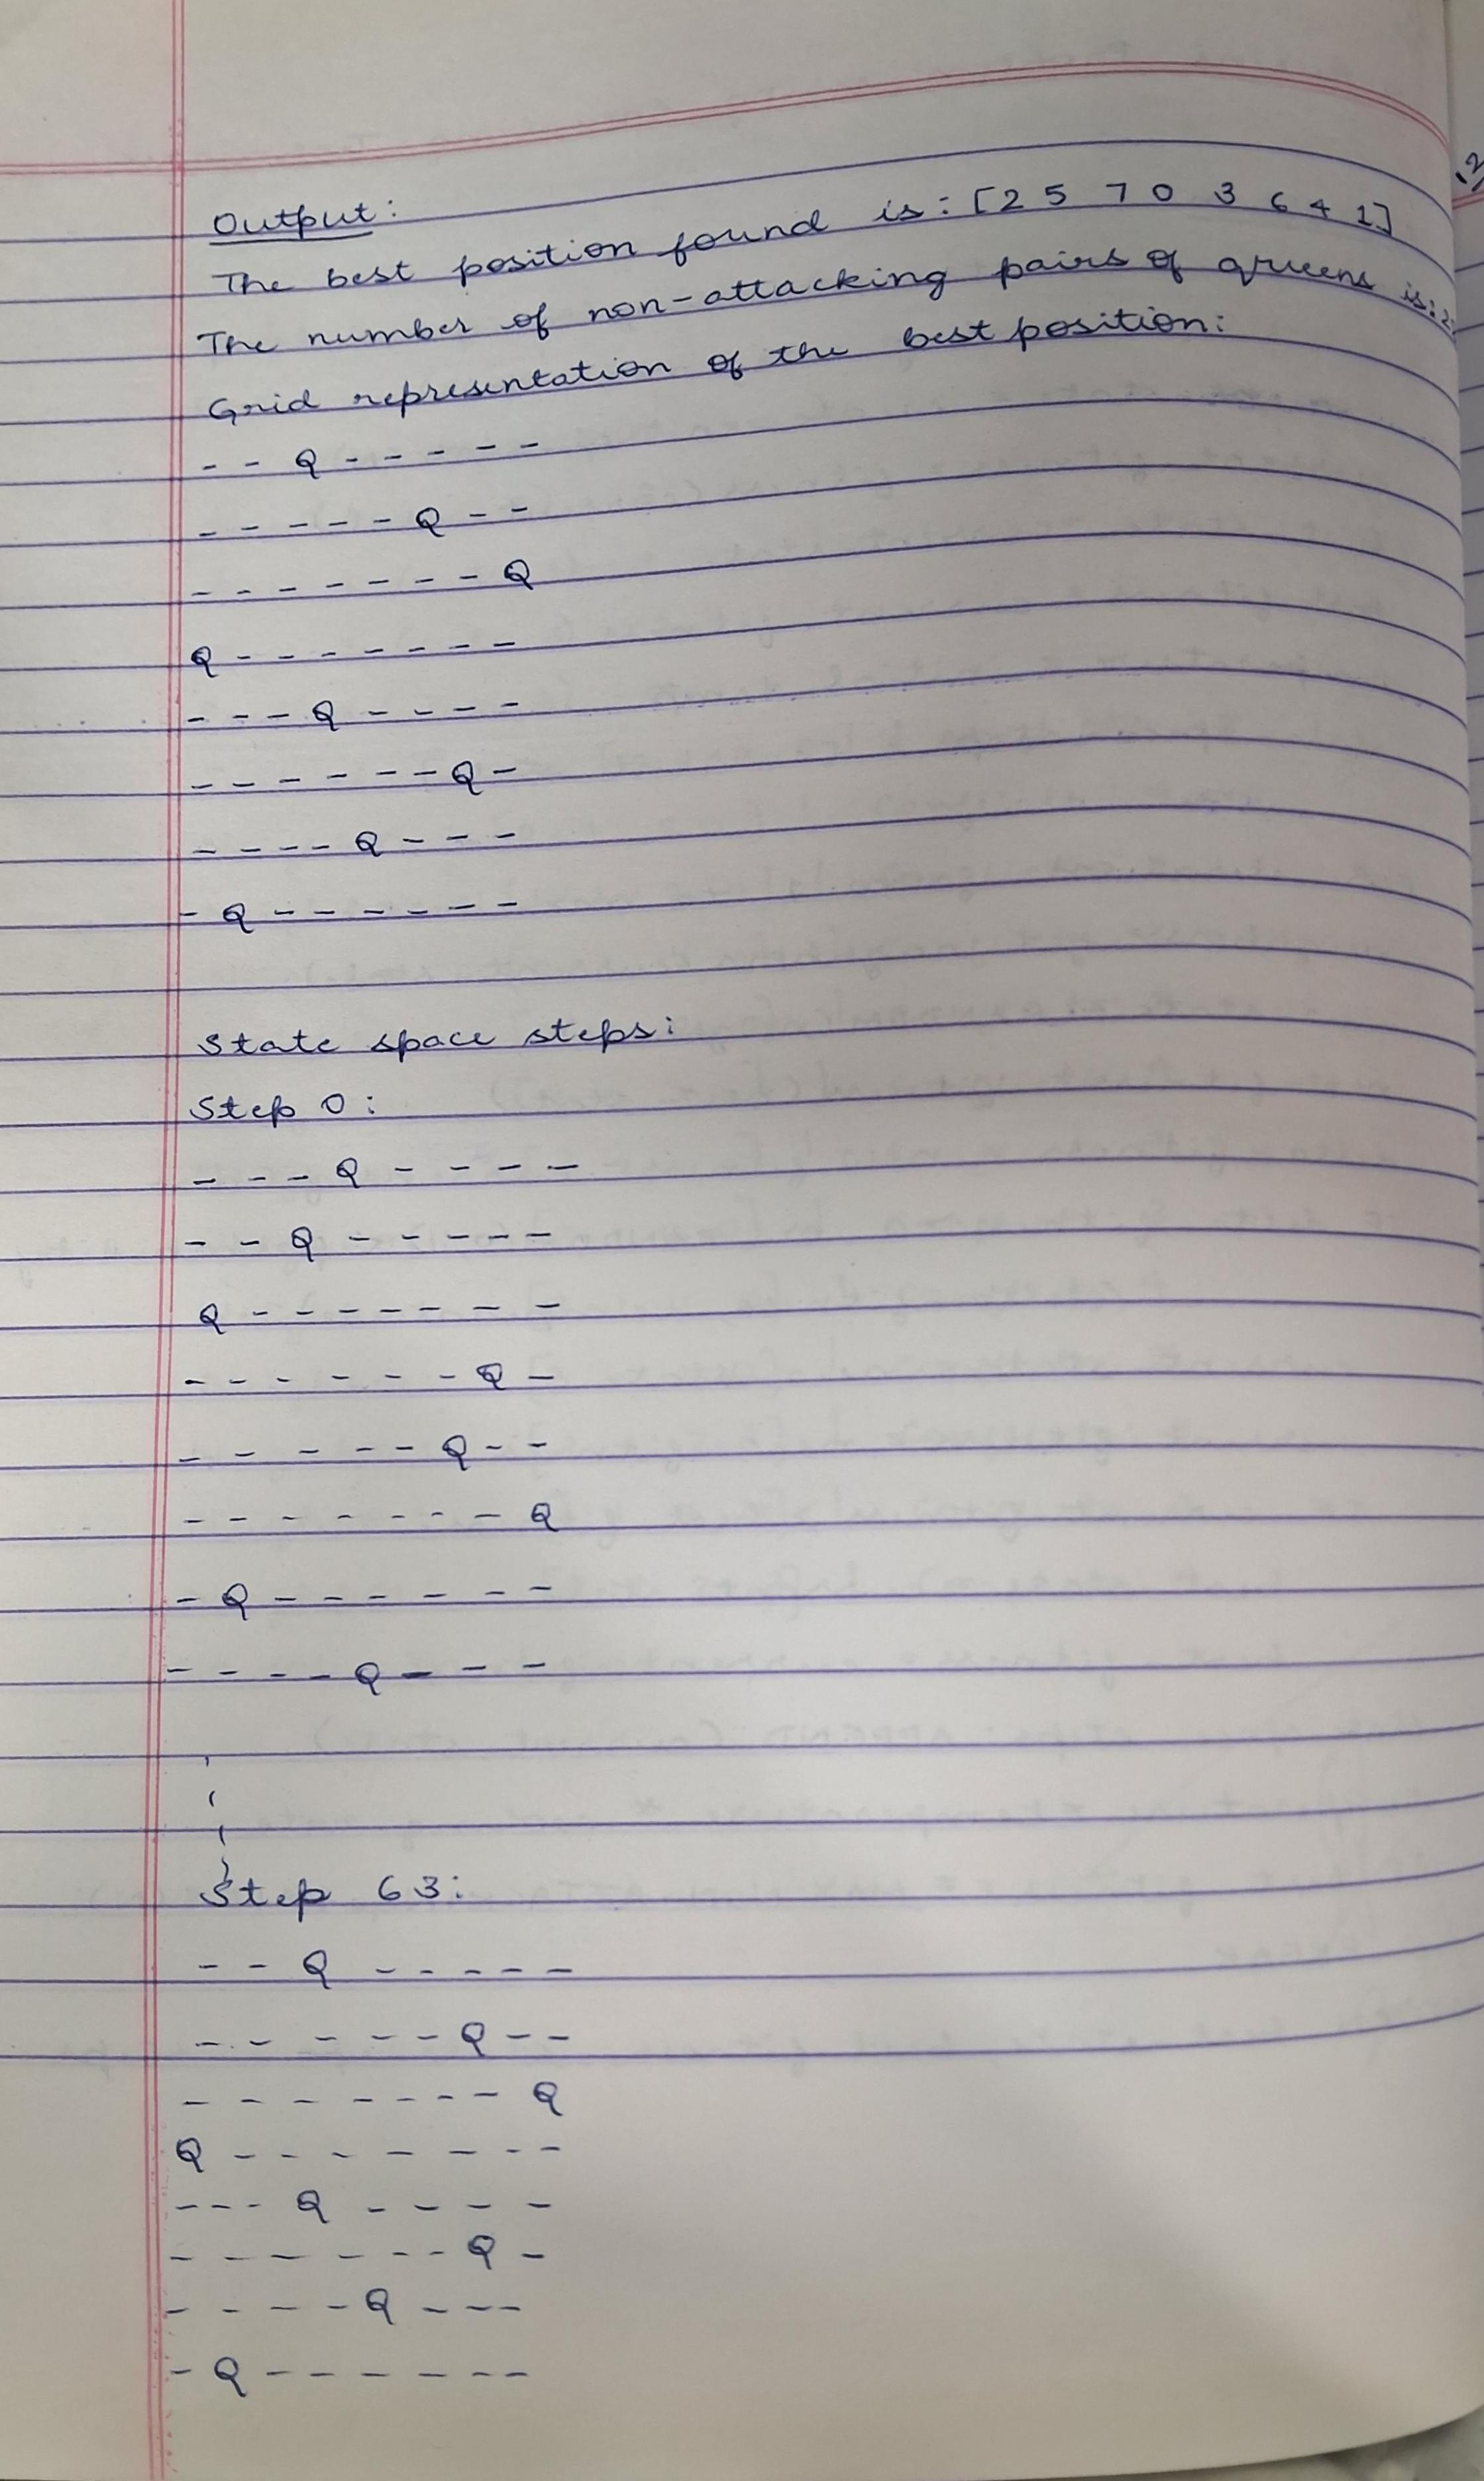 Output:
The best position found is: [2 5 7 0 3 6 4 1]
The number of non-attacking pairs of queens is:
Grid representation of the best position:
- - Q - - - - -
- - - - - Q - -
- - - - - - - Q
Q - - - - - - -
- - - Q - - - -
- - - - - - Q -
- - - - Q - - -
- Q - - - - - -
State space steps:
Step 0:
- - - Q - - - -
- - Q - - - - -
Q - - - - - - -
- - - - - - Q -
- - - - - Q - -
- - - - - - - Q
- Q - - - - - -
- - - - Q - - -
Step 63:
- - Q - - - - -
- - - - - Q - -
- - - - - - - Q
Q - - - - - - -
- - - Q - - - -
- - - - - - Q -
- - - - Q - - -
- Q - - - - - -